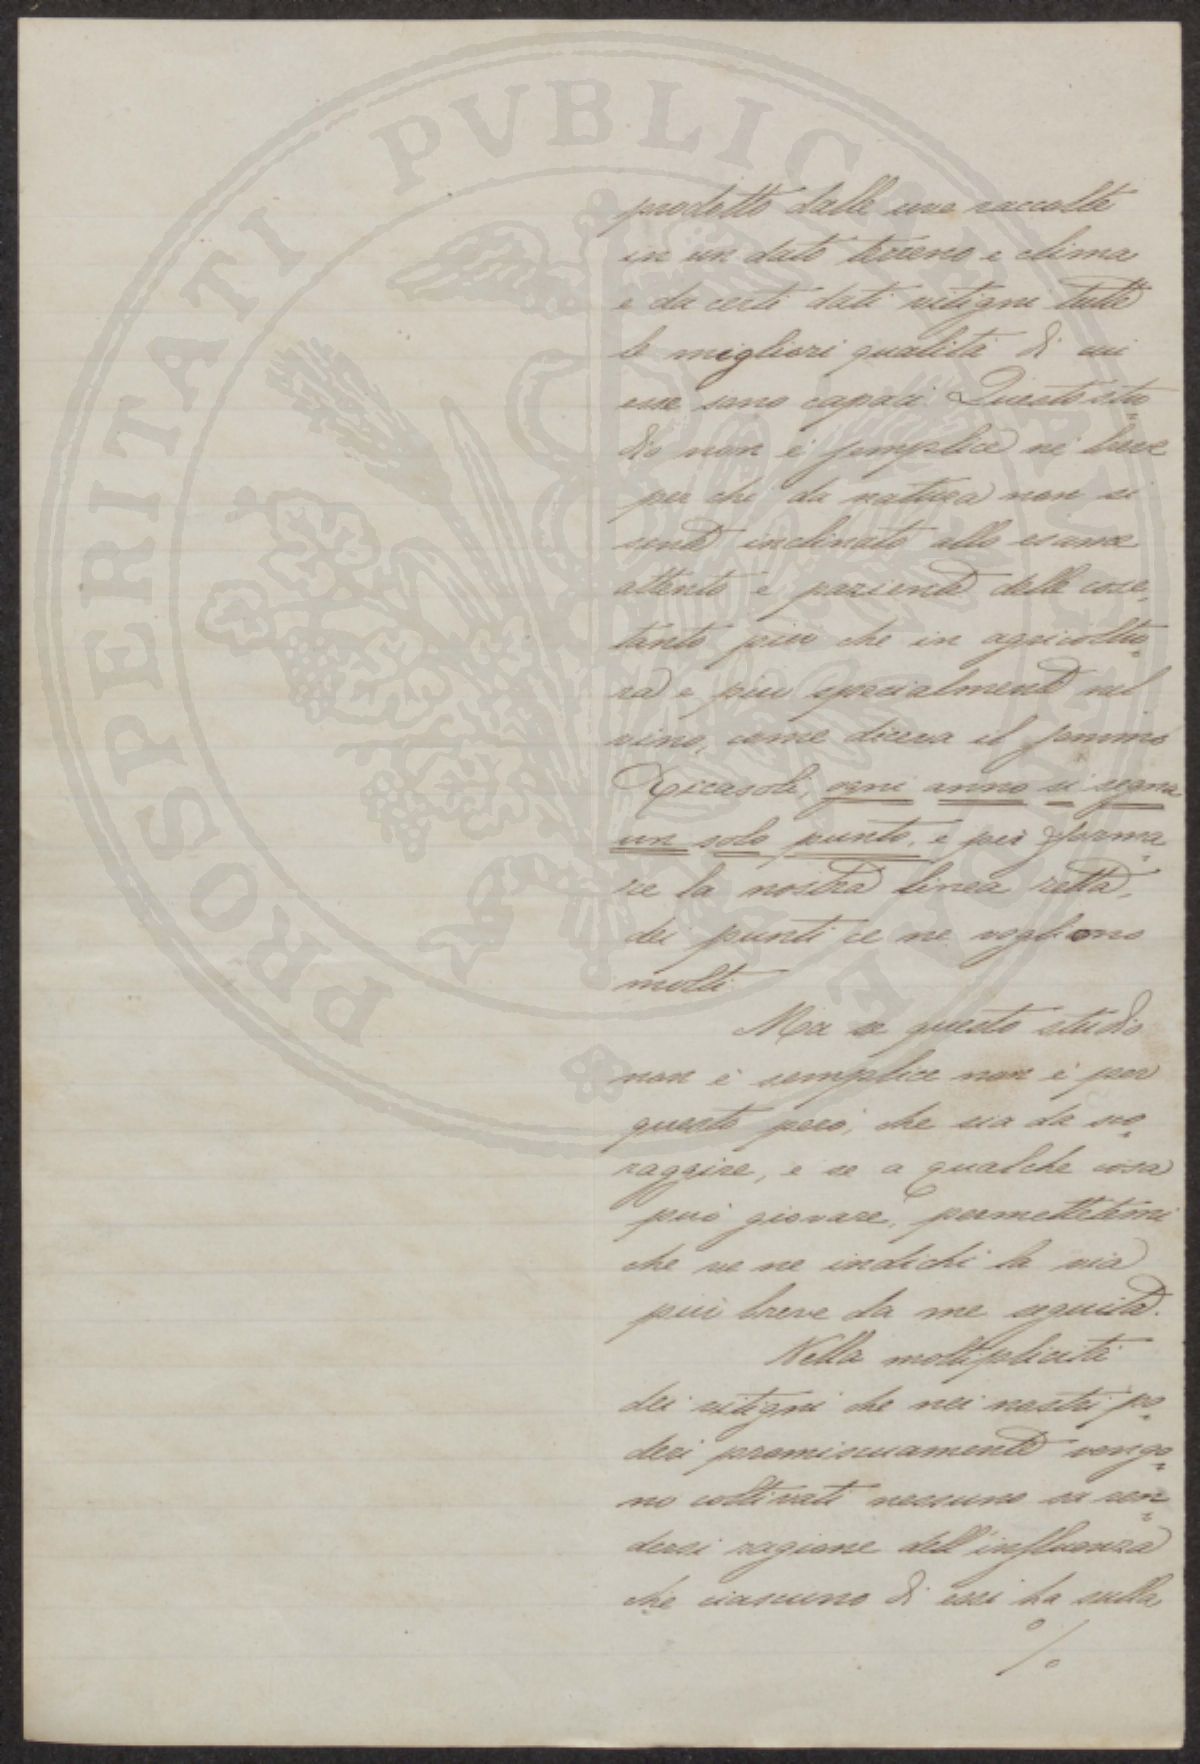 PROSPERITATI PVBLICAE AVGENDAE
prodotto dalle uve raccolte
in un dato terreno e clima
e da certi dati vitigni tutte
le migliori qualità di cui
esse sono capaci. Questo stu=
dio non è semplice nè breve
per chi da natura non si
sente inclinato allo esame
attento e paziente delle cose,
tanto più che in agricoltu=
ra e più specialmente nel
vino, come diceva il sommo
Ricasoli, ogni anno si segna
un solo punto, e per forma=
re la nostra linea retta,
dei punti ce ne vogliono
molti.
Ma se questo studio
non è semplice non è per
questo però, che sia da sco=
raggire, e se a qualche cosa
può giovare, permettetemi
che ve ne indichi la via
più breve da me seguita.
Nella moltiplicità
dei vitigni che nei nostri po=
deri promiscuamente vengo=
no coltivati nessuno sa ren=
dersi ragione dell'influenza
che ciascuno di essi ha sulla
%